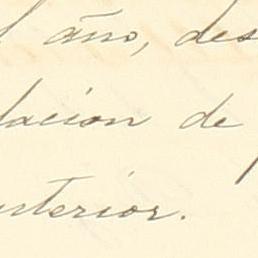 l año, des
lacion de
nterior.